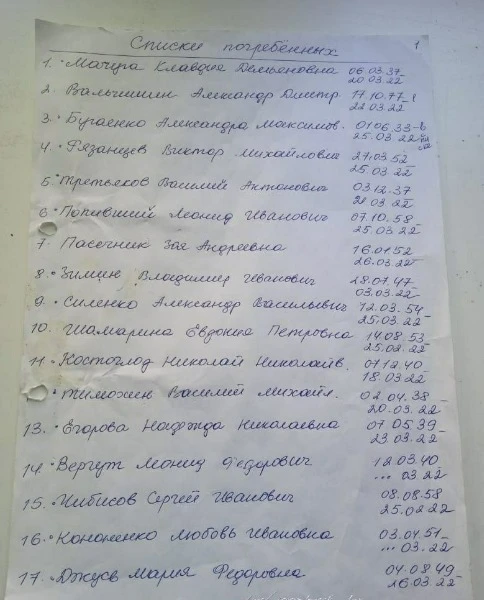 Списки погребённых 1
1. Мачула Клавдия Демьяновна 06.03.37-
20.03.22
2. Вальчишин Александр Дмитр 17.10.77-
22.03.22
3. Бугаенко Александра Максимов. 01.06.33-
25.03.22
4. Рязанцев Виктор Михайлович 27.03.52
25.03.22
5. Третьяков Василий Антонович 03.12.37
21.03.22
6. Попивший Леонид Иванович 07.10.58-
25.03.22
7. Пасечник Зоя Андреевна 16.01.52
26.03.22
8. Зимин Владимир Иванович 28.07.47
03.03.22
9. Силенко Александр Васильевич 12.03.54-
25.03.22
10. Шамарина Евдокия Петровна 14.08.53
25.02.22
11. Костоглод Николай Николаев. 07.12.40
18.03.22
Тимохин Василий Михайл. 02.04.38-
20.03.22
13. Егорова Надежда Николаевна 07.05.39-
23.03.22
14. Вергун Леонид Федорович 12.03.40
... 03.22
15. Чибисов Сергей Иванович 08.08.58
25.02.22
16. Кононенко Любовь Ивановна 03.04.51-
... 03.22
17. Мария Федоровна 04.08.49-
26.03.22